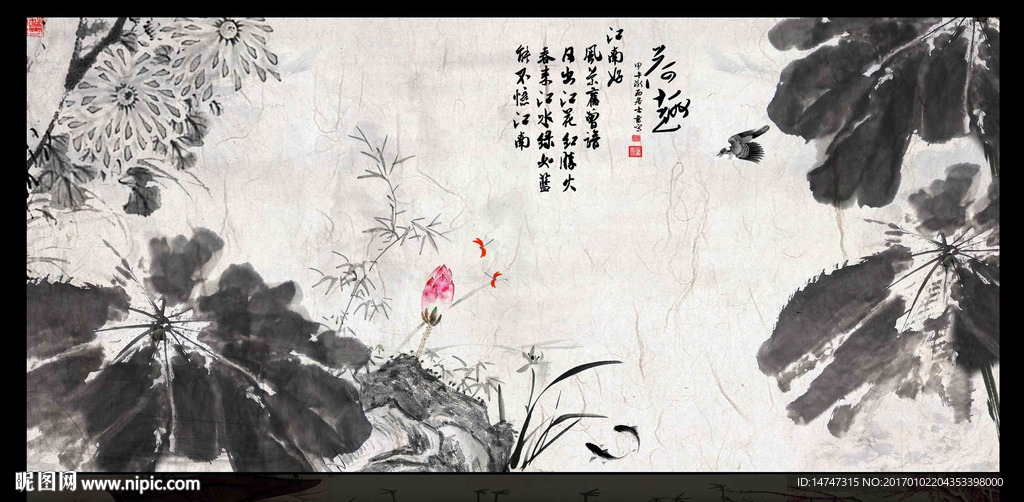 荷趣
江南好
風景舊曾諳
日出江花紅勝火
春來江水綠如藍
能不憶江南
昵图网 www.nipic.com
ID:14747315 NO:20170102204353398000